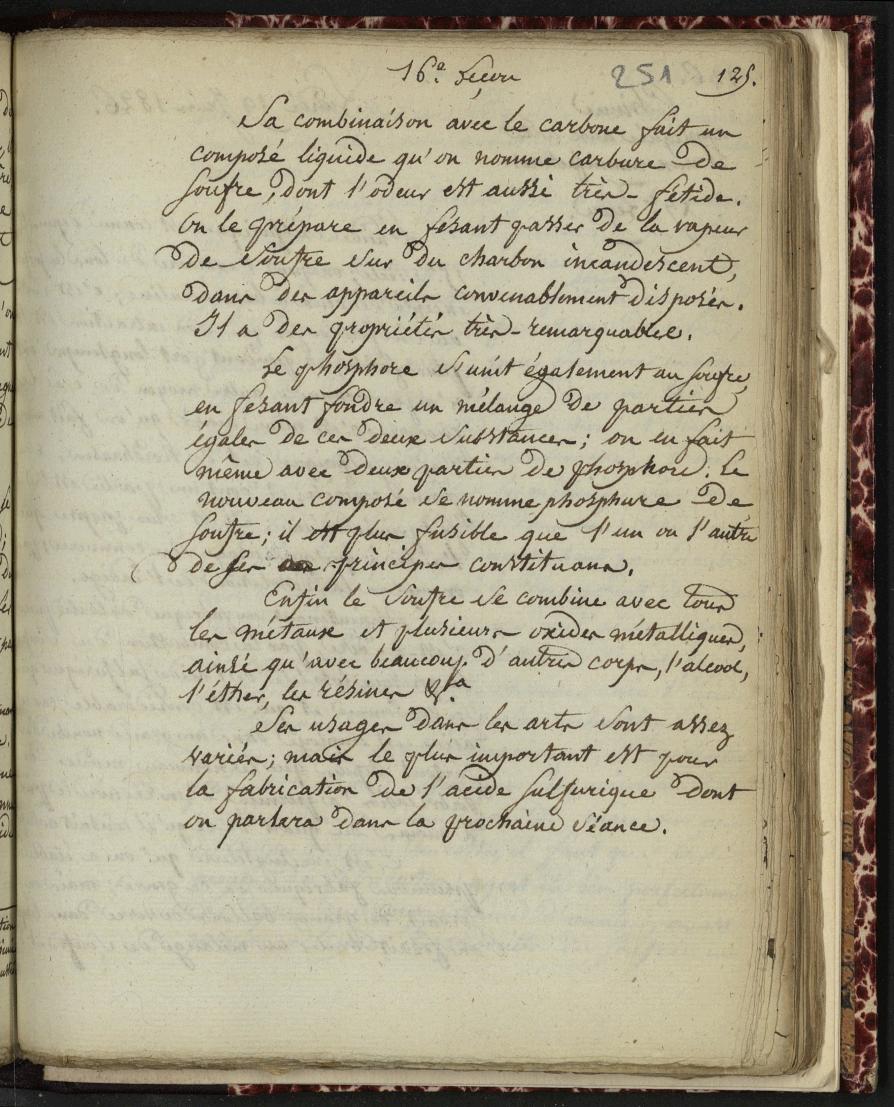 16.a Leçon 251 125.
Sa combinaison avec le carbone fait un
composé liquide qu'on nomme carbure de
soufre, dont l'odeur est aussi très-fétide.
On le prépare en fesant passer de la vapeur
de soufre sur du charbon incandescent,
dans des appareils convenablement disposés.
Il a des propriétés très-remarquables.
Le phosphore s'unit également au soufre,
en fesant fondre un mélange de parties
égales de ces deux substances; on en fait
même avec deux parties de phosphore. Le
nouveau composé se nomme phosphure de
soufre; il est plus fusible que l'un ou l'autre
de ses principes constituans.
Enfin le soufre se combine avec tous
les métaux et plusieurs oxides métalliques,
ainsi qu'avec beaucoup d'autres corps, l'alcool,
l'éther, les résines &.a
Ses usages dans les arts sont assez
variés; mais le plus important est pour
la fabrication de l'acide sulfurique dont
on parlera dans la prochaine séance.